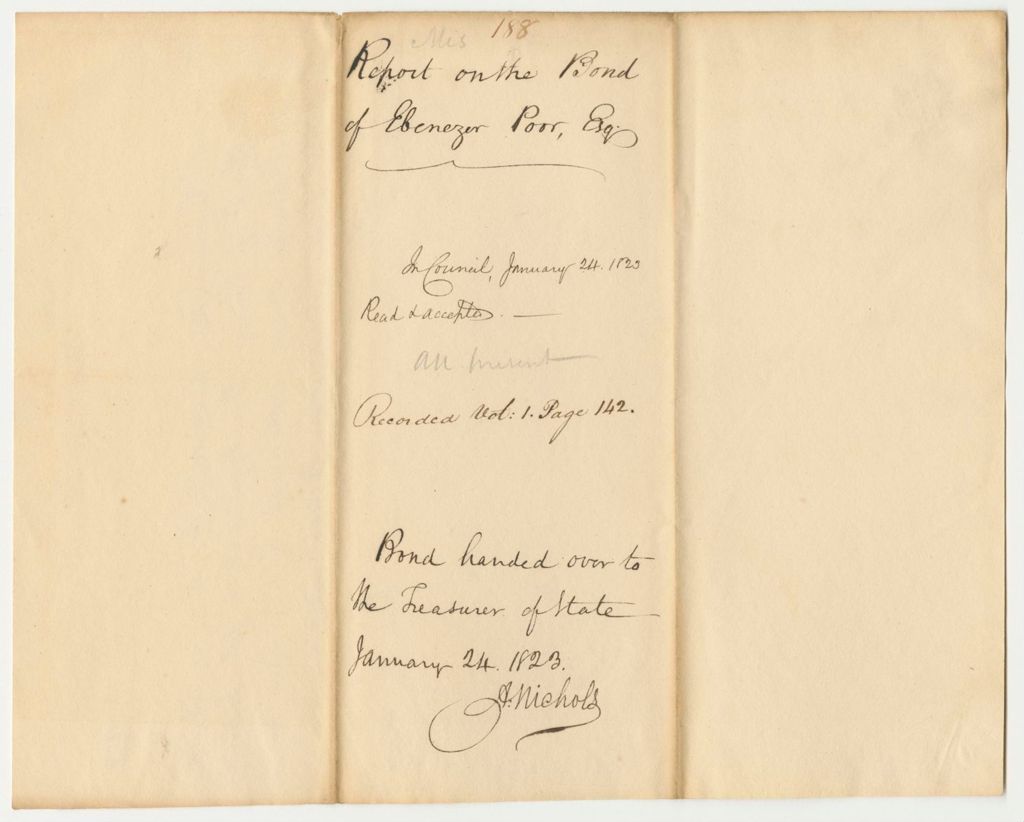 188
Mis
Report on the Bond
of Ebenezer Poor, Esq.
In Council, January 24. 1823
Read & accepted.
All present
Recorded Vol: 1. Page 142.
Bond handed over to
the Treasurer of State
January 24. 1823.
A. Nichols